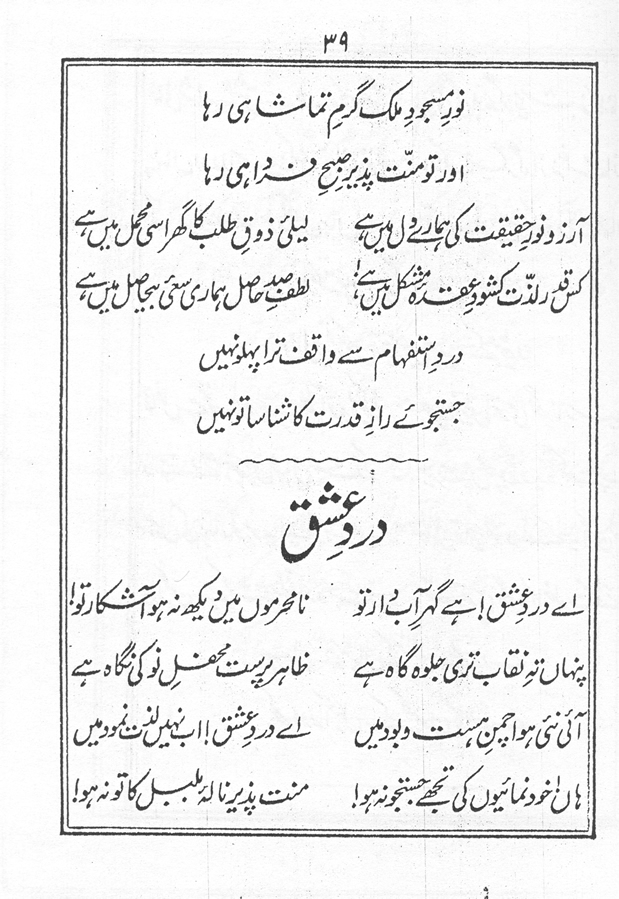 ۳۹
نورِ مسجودِ ملک گرمِ تماشا ہی رہا
اور تو منّت پذیرِ صبحِ فردا ہی رہا
آرزو نورِ حقیقت کی ہمارے دل میں ہے لیلیٰ ذوقِ طلب کا گھر اسی محمل میں ہے
کس قدر لذّت کشودِ عقدۂ مشکل میں ہے! لطفِ صد حاصل ہماری سعیِٔ بیحاصل میں ہے
دردِ استفہام سے واقف ترا پہلو نہیں
جستجوئے رازِ قدرت کا شناسا تو نہیں
دردِ عشق
اے دردِ عشق! ہے گہرِ آب دار تو نامحرموں میں دیکھ نہ ہو آشکار تو!
پنہاں تہِ نقاب تری جلوہ گاہ ہے ظاہر پرست محفلِ نو کی نگاہ ہے
آئی نئی ہوا چمنِ ہست و بود میں اے دردِ عشق! اب نہیں لذّت نمود میں
ہاں! خود نمائیوں کی تجھے جستجو نہ ہو! منت پذیر نالۂ بلبل کا تو نہ ہو!